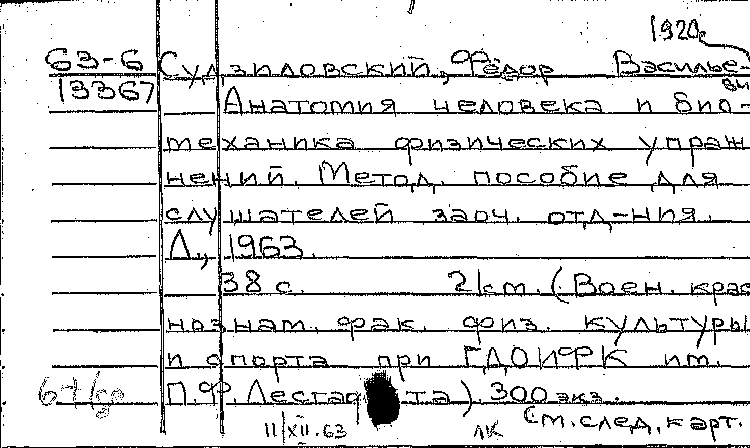 1920,
63-6 Судзиловский, Фёдор Василье-
13367 вич
Анатомия человека и био-
механика физических упраж
нений. Метод. пособие для
слушателей заоч. отд-ния.
Л., 1963.
38 с. 21 см. (Воен. крас
нознам. фак. физ. культуры
и спорта при ГДОИФК им.
П.Ф. Лесгафта). 300 экз.
См. след. карт.
11/XII.63 ЛК